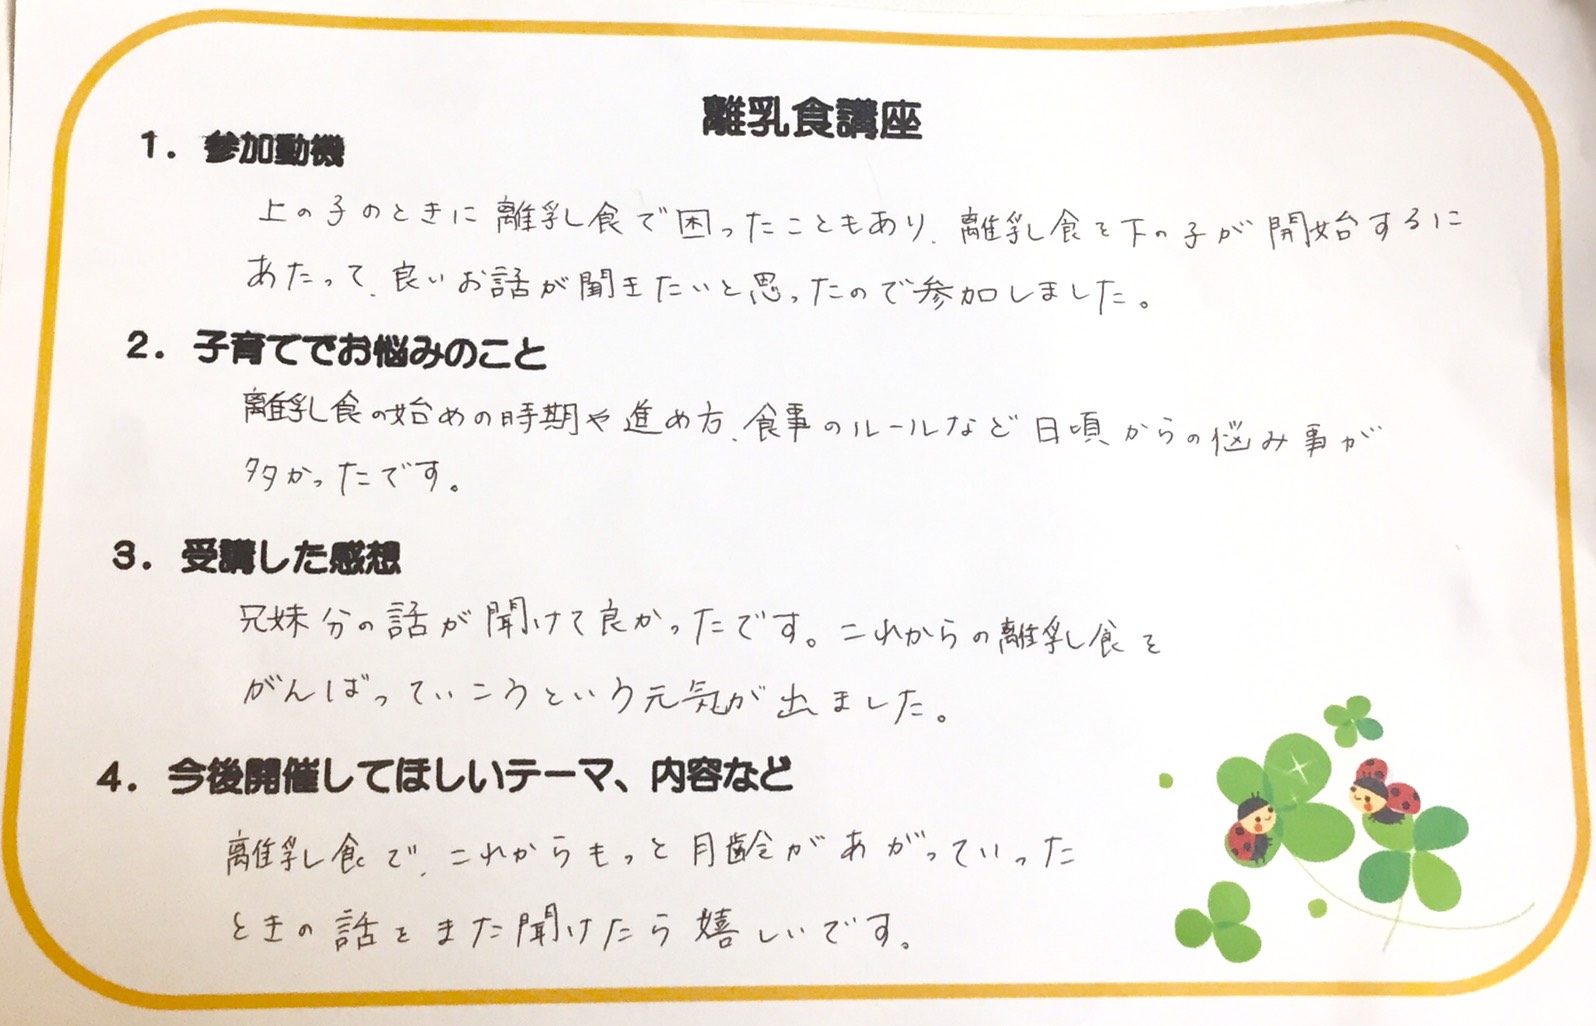 離乳食講座
1. 参加動機
上の子のときに離乳食で困ったこともあり、離乳食を下の子が開始するに
あたって、良いお話が聞きたいと思ったので参加しました。
2. 子育てでお悩みのこと
離乳食の始めの時期や進め方、食事のルールなど日頃からの悩み事が
多かったです。
3. 受講した感想
兄妹分の話が聞けて良かったです。これからの離乳食を
がんばっていこうという元気が出ました。
4. 今後開催してほしいテーマ、内容など
離乳食で、これからもっと月齢があがっていった
ときの話をまた聞けたら嬉しいです。